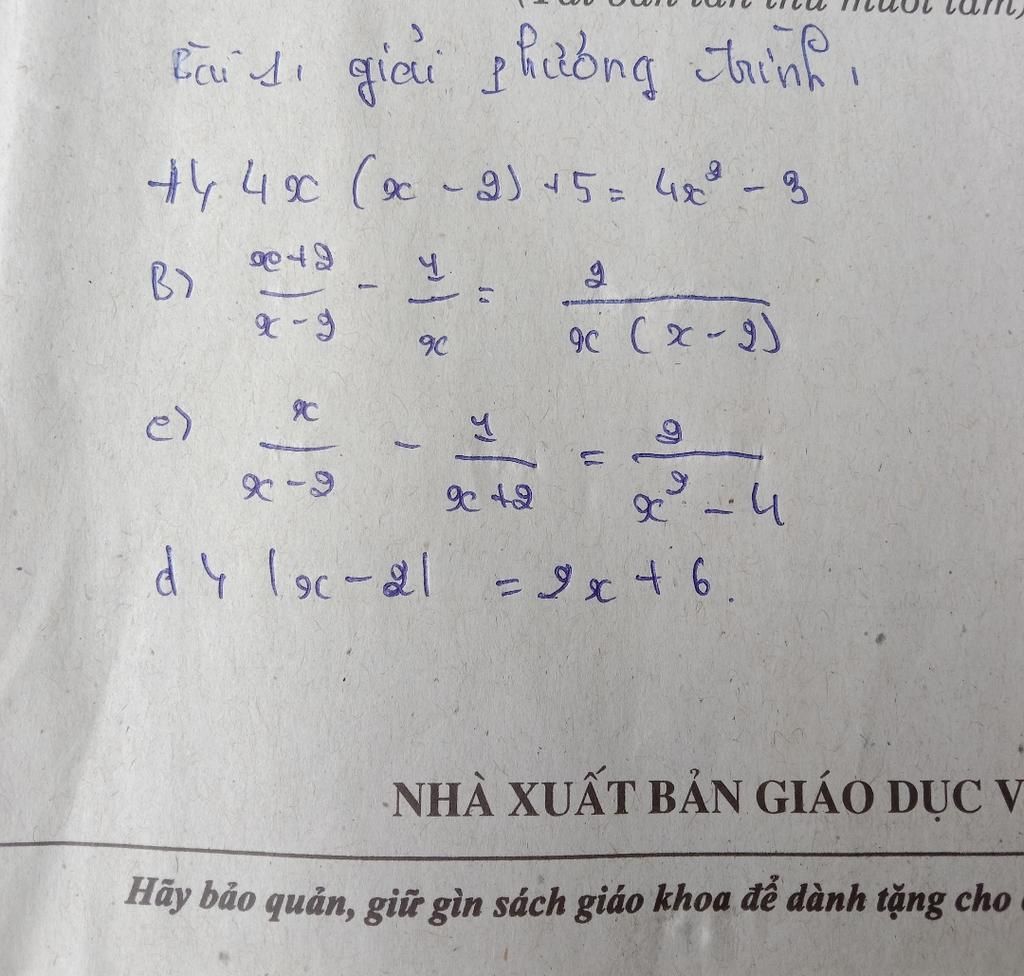 (Tái bản lần thứ mười tám)
Bài 1. giải phương trình.
A) 4x (x - 2) + 5 = 4x² - 3
B) \frac{x+2}{x-2} - \frac{1}{x} = \frac{2}{x(x-2)}
c) \frac{x}{x-2} - \frac{1}{x+2} = \frac{2}{x²-4}
d) |x - 2| = 2x + 6.
NHÀ XUẤT BẢN GIÁO DỤC V
Hãy bảo quản, giữ gìn sách giáo khoa để dành tặng cho